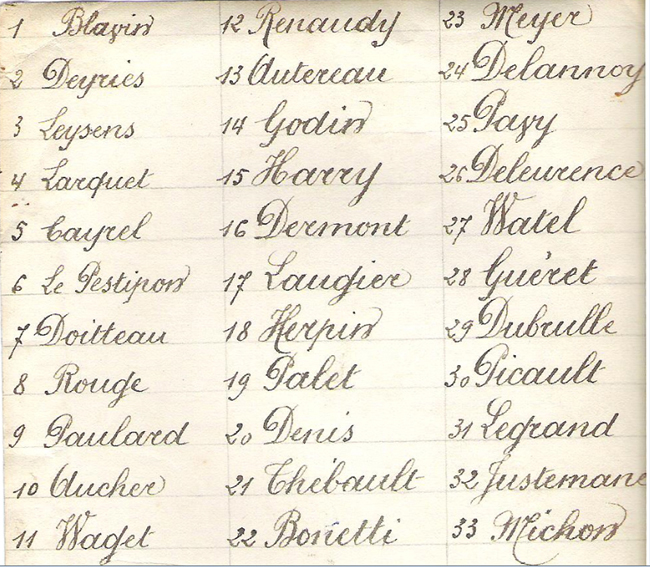 1 Blavin
2 Deyries
3 Leysens
4 Larquet
5 Cayrel
6 Le Pestipon
7 Doitteau
8 Rouge
9 Paulard
10 Aucher
11 Waget
12 Renaudy
13 Autereau
14 Godin
15 Harry
16 Dermont
17 Laugier
18 Herpin
19 Palet
20 Denis
21 Thébault
22 Bonetti
23 Meyer
24 Delannoy
25 Pavy
26 Deleurence
27 Watel
28 Guéret
29 Dubrulle
30 Picault
31 Legrand
32 Justemane
33 Michon